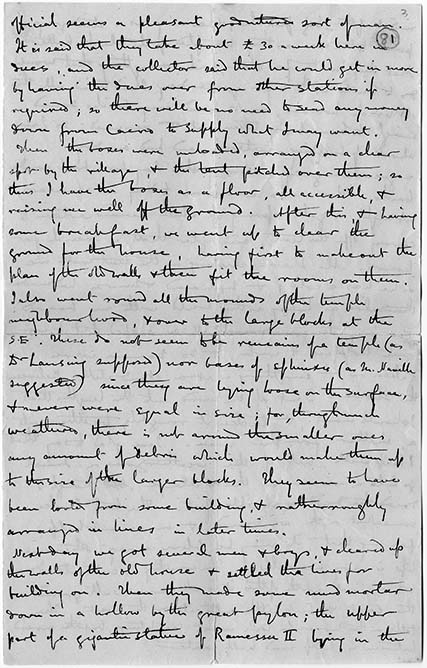 3.
81
official seems a pleasant goodnatured sort of man.
It is said that they take about £30 a week here in
dues, and the collector said that he could get in more
by having the dues over from other stations if
required; so there will be no need to send any money
down from Cairo to supply what I may want.
Then the boxes were unloaded, arranged on a clear
spot by the village, & the tent pitched over them; so
thus I have the boxes as a floor, all accessible, &
raising me well off the ground. After this, & having
some breakfast, we went up to clear the
ground for the house, having first to make out the
plan of the old walls & then fit the rooms on them.
I also went round all the mounds of the temple
neighbourhood, & over to the large blocks at the
S.E. These do not seem to be remains of a temple (as
Dr Lansing supposed) nor bases of sphinxes (as M. Naville
suggested) since they are lying loose on the surface,
& never were equal in size; for, though much
weathered, there is not around the smaller ones
any amount of debris which would make them up
to the size of the larger blocks. They seem to have
been looted from some building, & rather roughly
arranged in lines in later times.
Next day we got several men & boys, & cleared up
the walls of the old house & settled the lines for
building on. Then they made some mud mortar
down in a hollow by the great pylon; the upper
part of a gigantic statue of Ramessu II lying in the